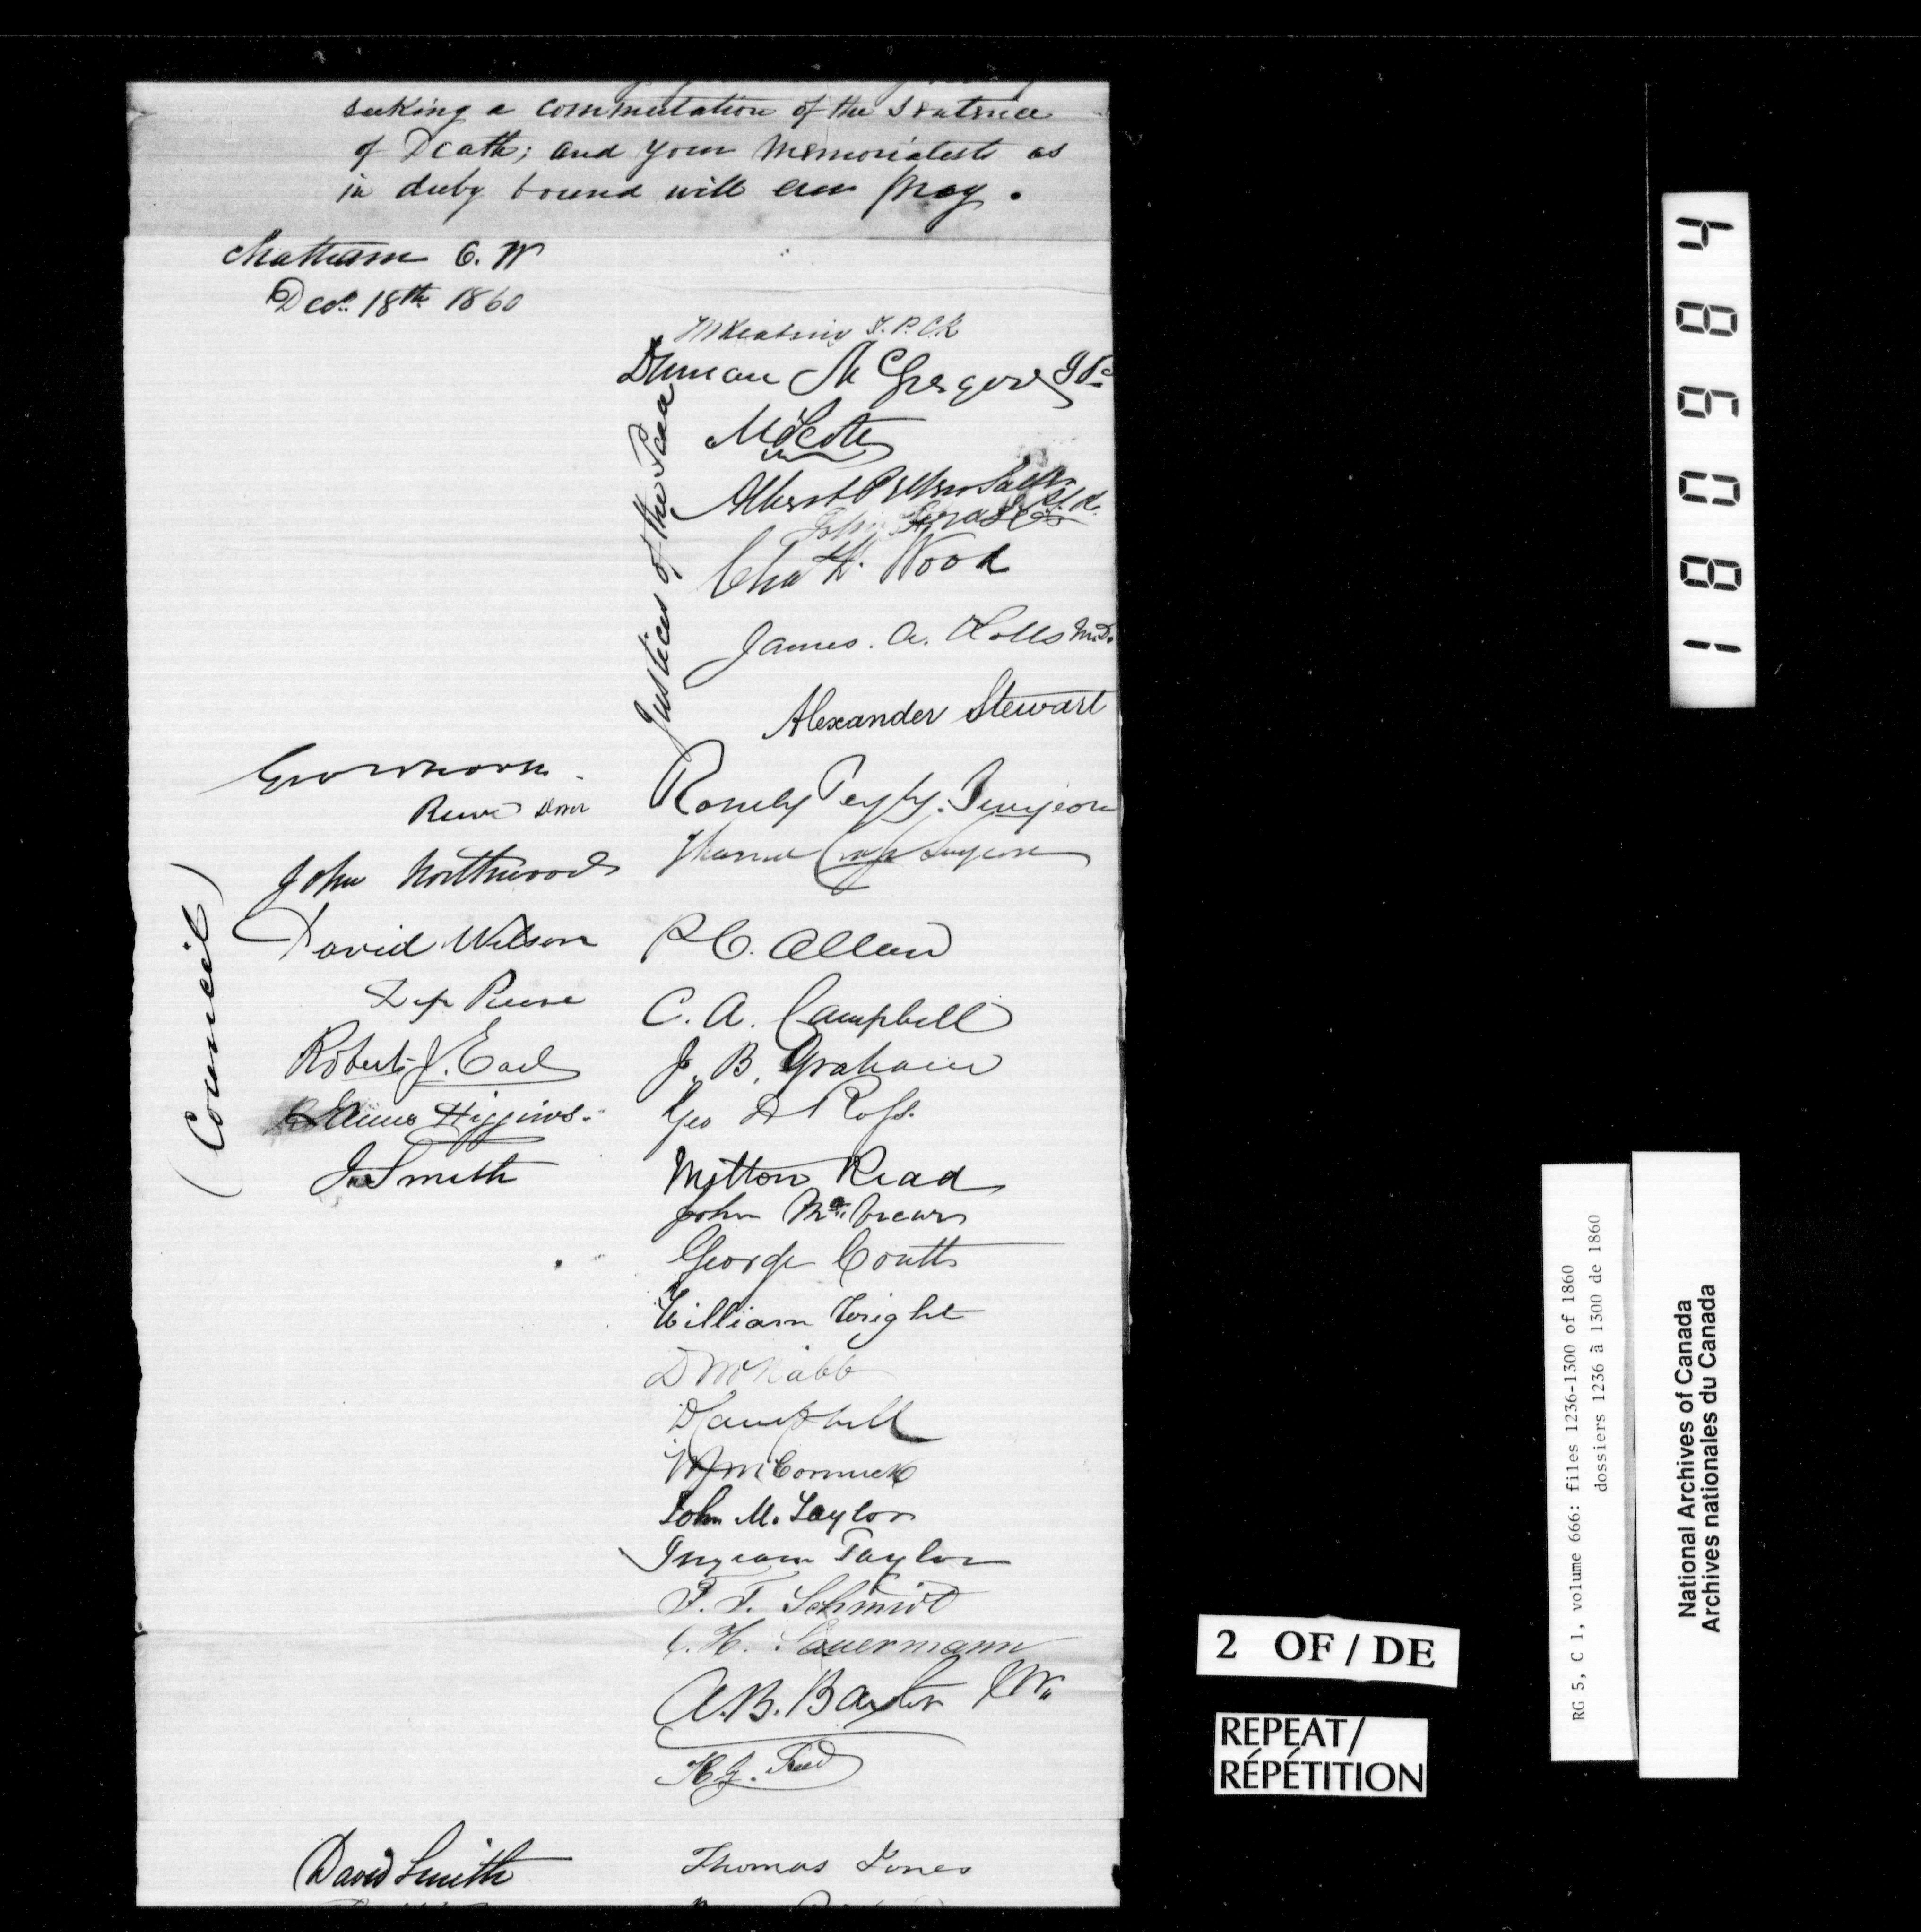 seeking a commutation of the Sentence
of Death; and your Memorialists as
in duty bound will ever pray.
Chatham C. W
Decr. 18th 1860
Justices of the Peace
Duncan McGregor J P
Albert P
John
Chas H. Wood
James. A. M.D.
Alexander Stewart
Surgeon
Thomas Cross Surgeon
(Council)
Reeve Dover
John Northwood
David Wilson
Dep Reeve
Robert J. Earl
James Higgins.
J. Smith
P C. Allen
C. A. Campbell
J. B. Graham
Geo A Ross.
Mytton Read
John
George Coutts
William Wright
D McNabb
D Campbell
W McCormick
John M. Taylor
Ingram Taylor
F. F. Schmidt
C. H. Sauermann
A. B. Baxter Jr.
David Smith
Thomas Jones
180984
2 OF / DE
REPEAT/
RÉPÉTITION
RG 5, C 1, volume 666: files 1236-1300 of 1860
dossiers 1236 à 1300 de 1860
National Archives of Canada
Archives nationales du Canada